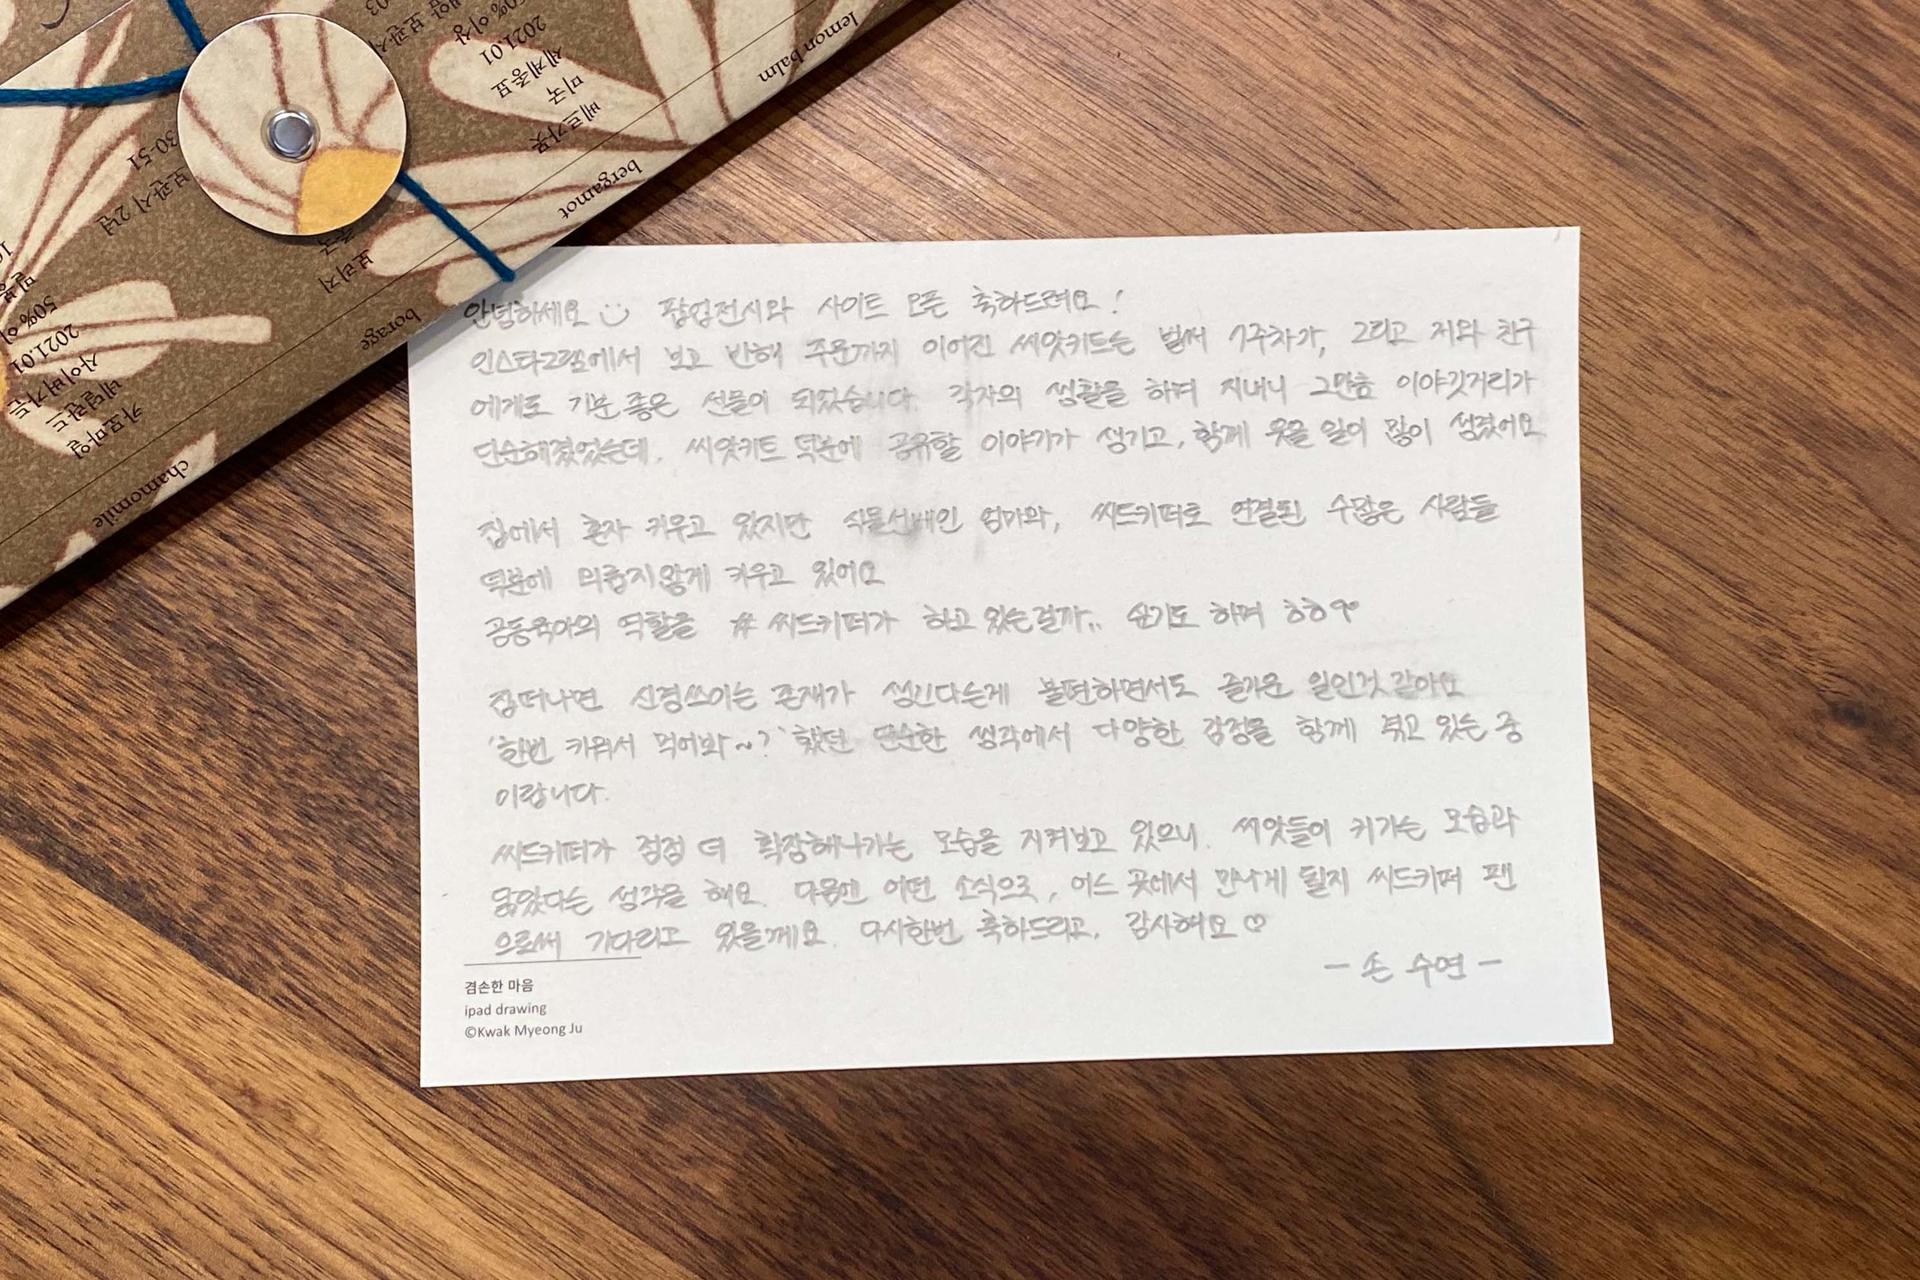 안녕하세요 팝업전시와 사이트 오픈 축하드려요!
인스타그램에서 보고 반해 주문까지 이어진 씨앗키트는 벌써 7주차가, 그리고 저와 친구
에게도 기분 좋은 선물이 되었습니다. 각자의 생활을 하며 지내니 그만큼 이야깃거리가
단순해졌었는데, 씨앗키트 덕분에 공유할 이야기가 생기고, 함께 웃을 일이 많이 생겼어요
집에서 혼자 키우고 있지만 식물선배인 엄마와, 씨드키퍼로 연결된 수많은 사람들
덕분에 외롭지않게 키우고 있어요
공동육아의 역할을 # 씨드키퍼가 하고 있는걸까.. 싶기도 하며 ㅎㅎ
집떠나면 신경쓰이는 존재가 생긴다는게 불편하면서도 즐거운 일인것 같아요
'한번 키워서 먹어봐~?' 했던 단순한 생각에서 다양한 감정을 함께 겪고 있는 중
이랍니다.
씨드키퍼가 점점 더 확장해나가는 모습을 지켜보고 있으니, 씨앗들이 커가는 모습과
닮았다는 생각을 해요. 다음엔 어떤 소식으로, 어느 곳에서 만나게 될지 씨드키퍼 팬
으로써 기다리고 있을게요. 다시한번 축하드리고, 감사해요♡
- 손 수연 -
겸손한 마음
ipad drawing
©Kwak Myeong Ju
lemon balm
베르가못
미국
세계종묘
2021.01
bergamot
보리지
보관시 2년
30-51
borage
카모마일
네덜란드
사이버가든
2021.01
chamomile